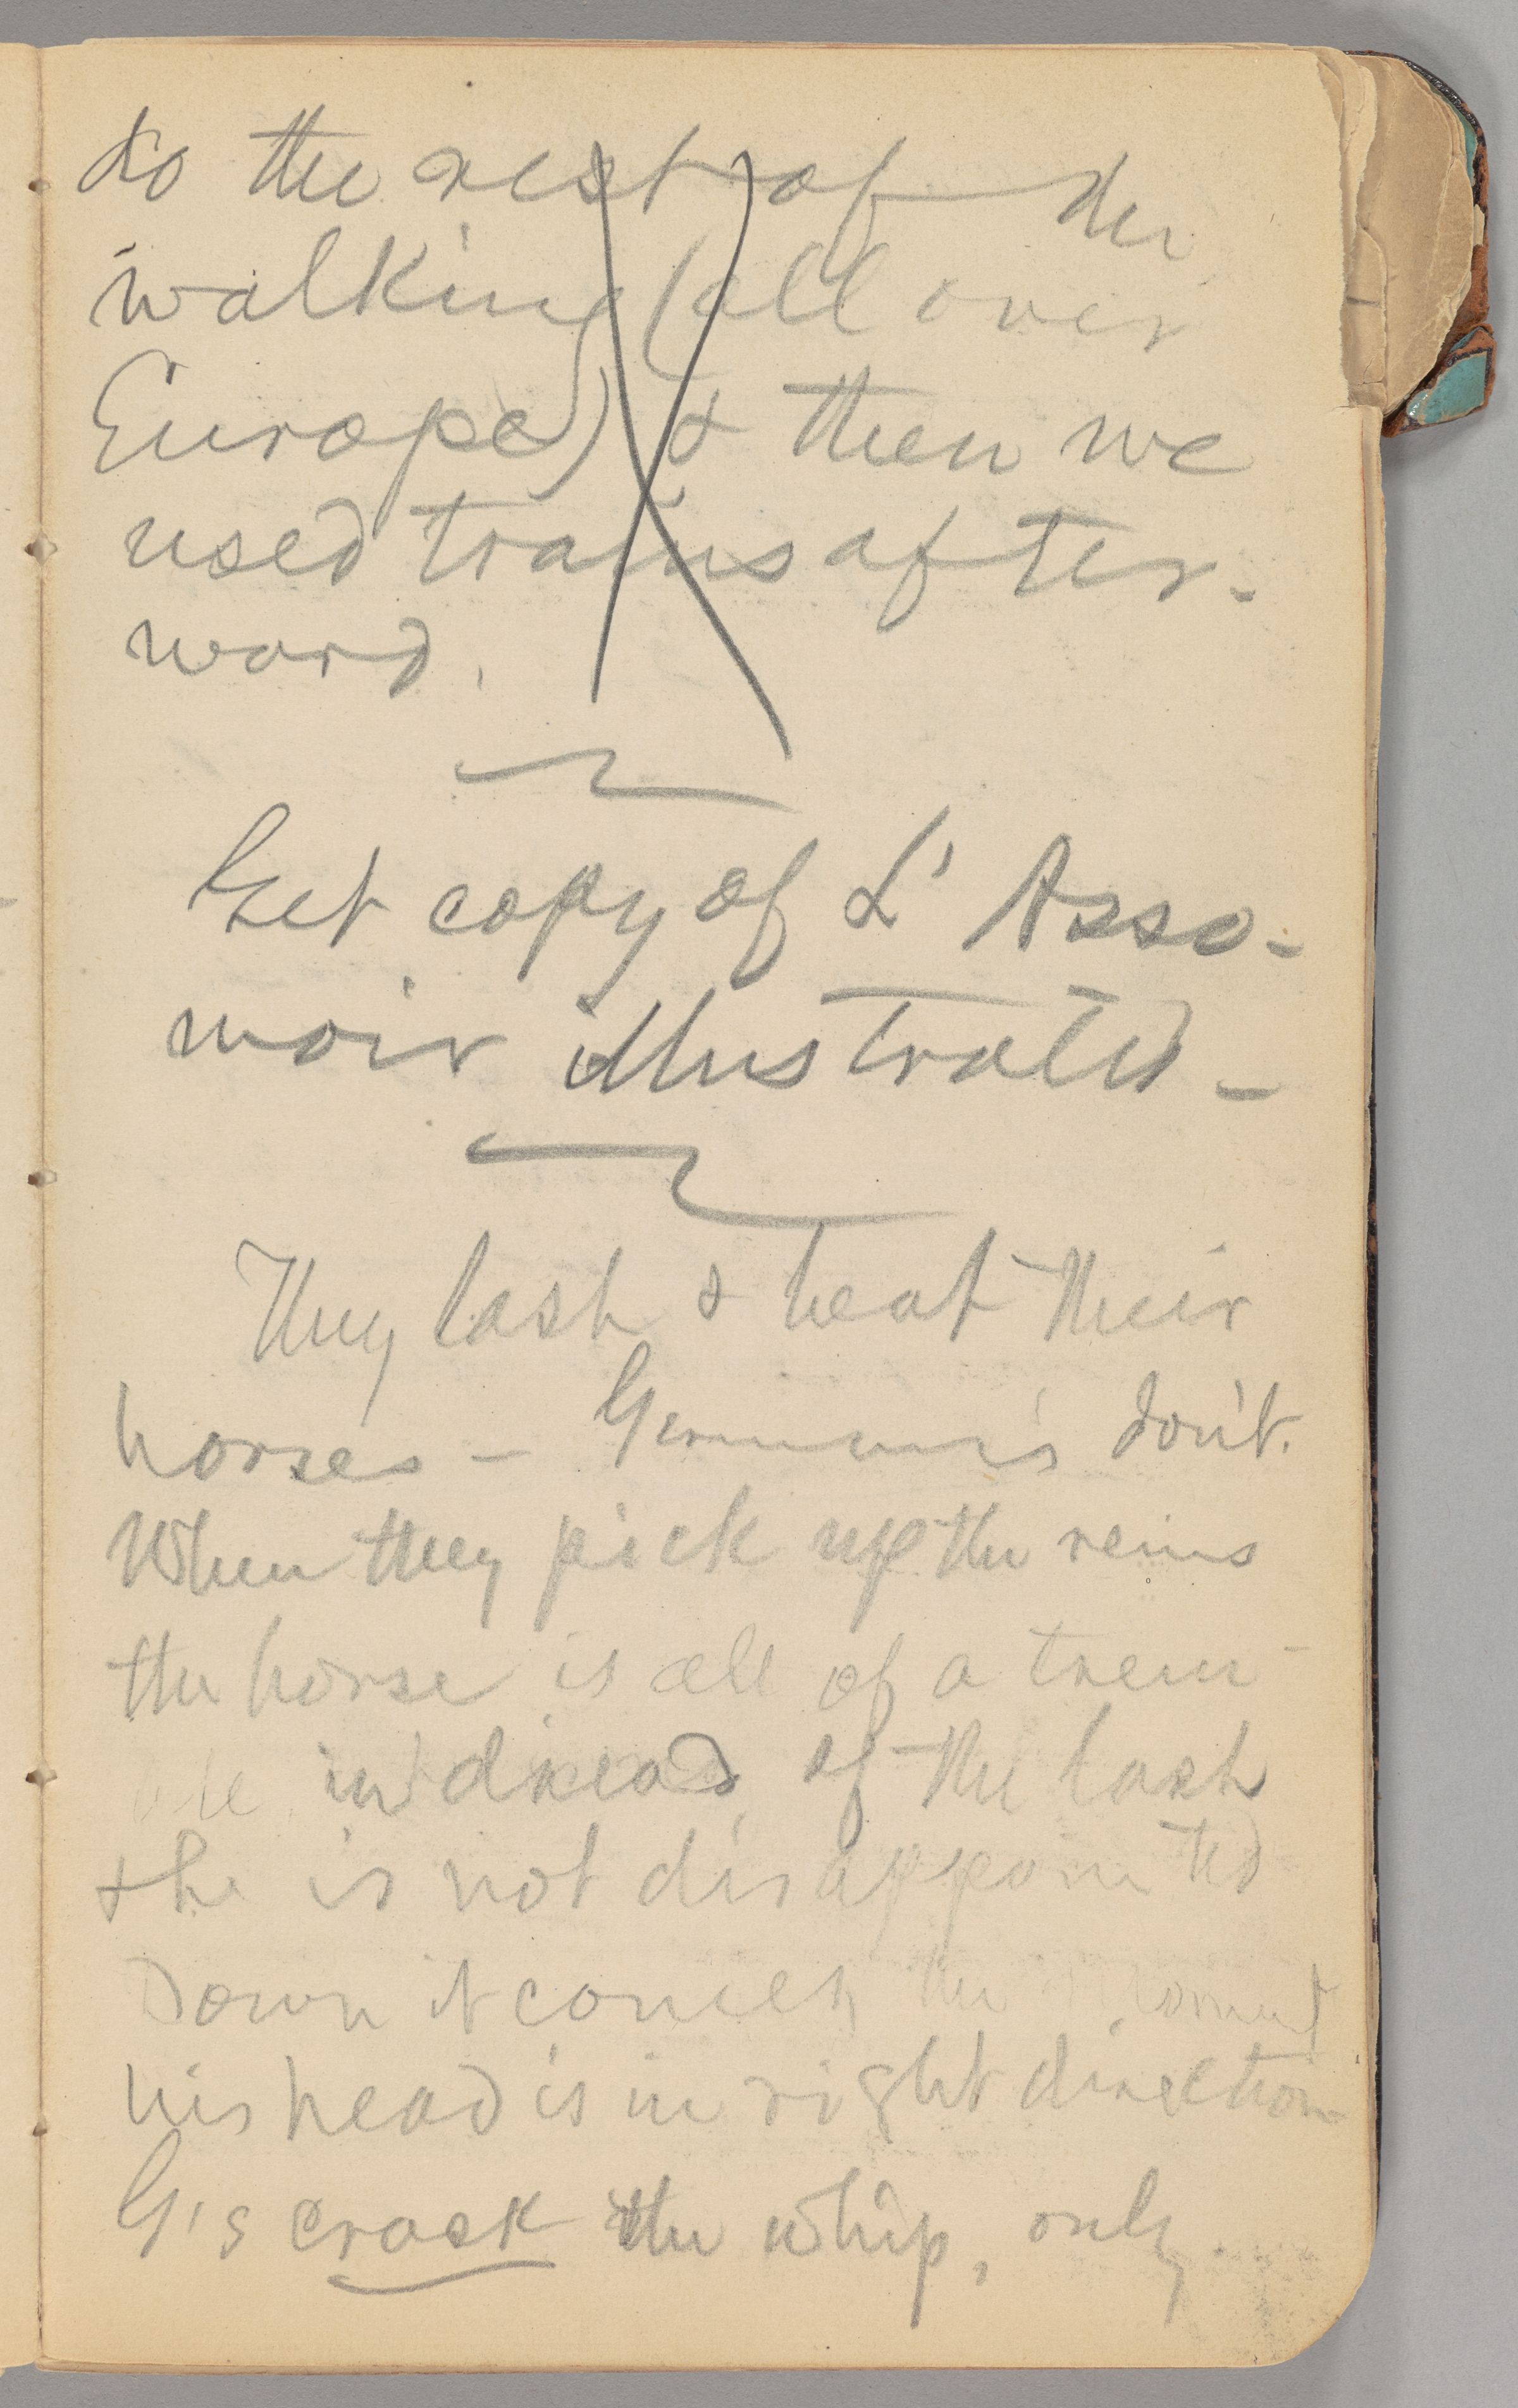 do the rest of the
walking (all over
Europe) & then we
used trains after-
ward.
Get copy of L' Asso-
moir illustrated -
They lash & beat their
horses - Germans don't.
When they pick up the reins
the horse is all of a trem-
ble in dread of the lash
& he is not disappointed
Down it comes, the moment
his head is in right direction
G's crack the whip, only